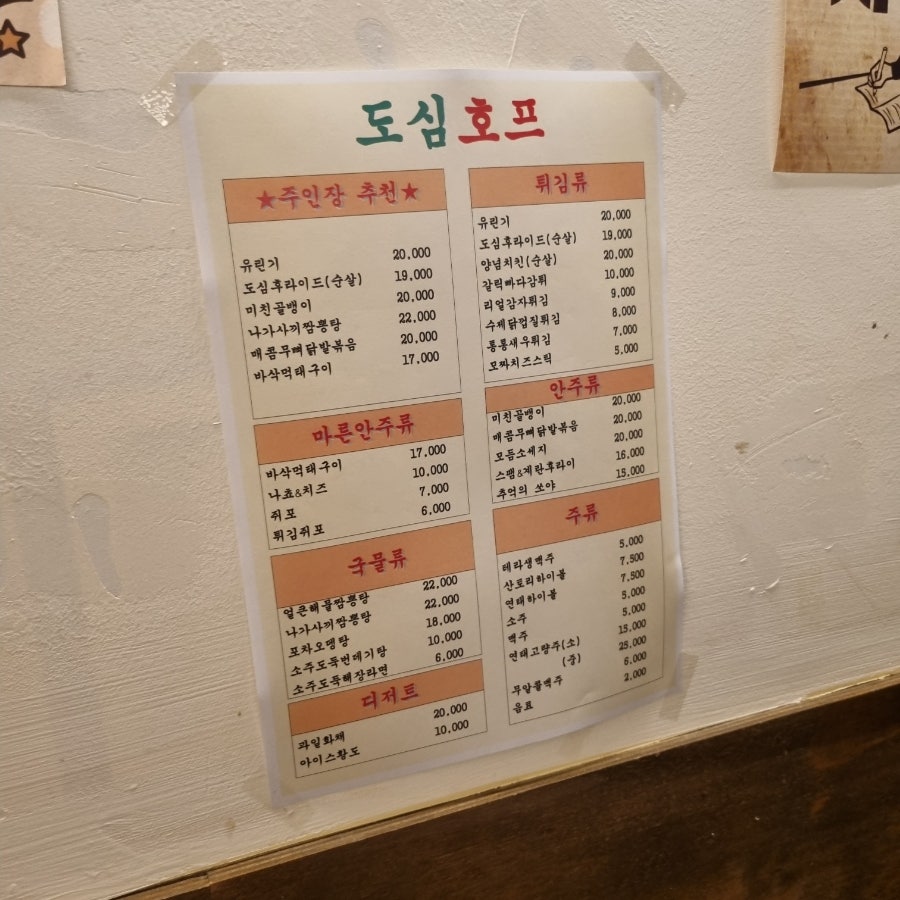 도심호프
★주인장 추천★
유린기 20,000
도심후라이드(순살) 19,000
미친골뱅이 20,000
나가사끼짬뽕탕 22,000
매콤무뼈닭발볶음 20,000
바삭먹태구이 17,000
마른안주류
바삭먹태구이 17,000
나쵸&치즈 10,000
쥐포 7,000
튀김쥐포 6,000
국물류
얼큰해물짬뽕탕 22,000
나가사끼짬뽕탕 22,000
포차오뎅탕 18,000
소주도둑번데기탕 10,000
소주도둑해장라면 6,000
디저트
과일화채 20,000
아이스황도 10,000
튀김류
유린기 20,000
도심후라이드(순살) 19,000
양념치킨(순살) 20,000
갈릭빠다감튀 10,000
리얼감자튀김 9,000
수제닭껍질튀김 8,000
통통새우튀김 7,000
모짜치즈스틱 5,000
안주류
미친골뱅이 20,000
매콤무뼈닭발볶음 20,000
모듬소세지 20,000
스팸&계란후라이 16,000
추억의 쏘야 15,000
주류
테라생맥주 5,000
산토리하이볼 7,500
연태하이볼 7,500
소주 5,000
맥주 5,000
연태고량주(소) 15,000
(중) 25,000
무알콜맥주 6,000
음료 2,000